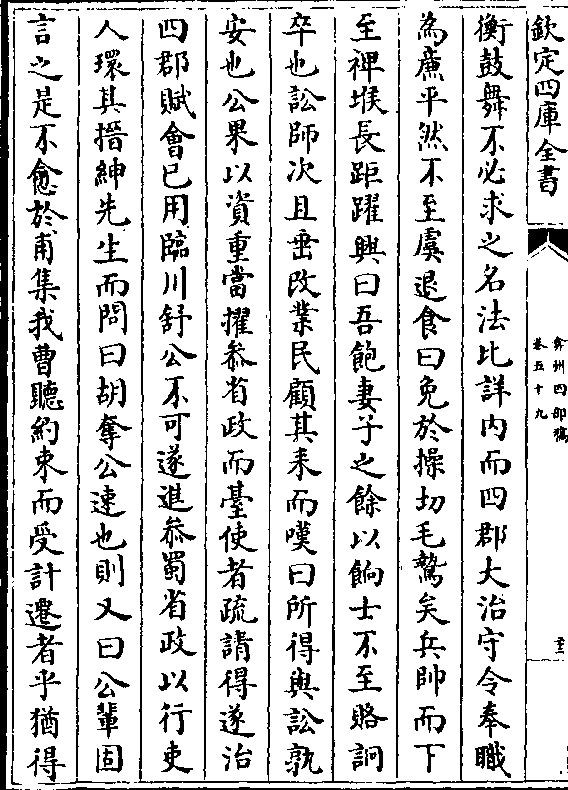 欽定四庫全書
弇州四部稿
卷五十九
衡鼓舞不必求之名法比詳内而四郡大治守令奉職
為廉平然不至虞退食曰免於操切毛鷙矣兵帥而下
至裨堠長距躍興曰吾飽妻子之餘以餉士不至賂詗
卒也訟師次且垂改業民顧其耒而嘆曰所得與訟孰
安也公果以資重當擢叅省政而臺使者疏請得遂治
四郡賦會已用臨川舒公不可遂進叅蜀省政以行吏
人環其搢紳先生而問曰胡奪公速也則又曰公輩固
言之是不愈於甫集我曹聽約束而受計遷者乎猶得